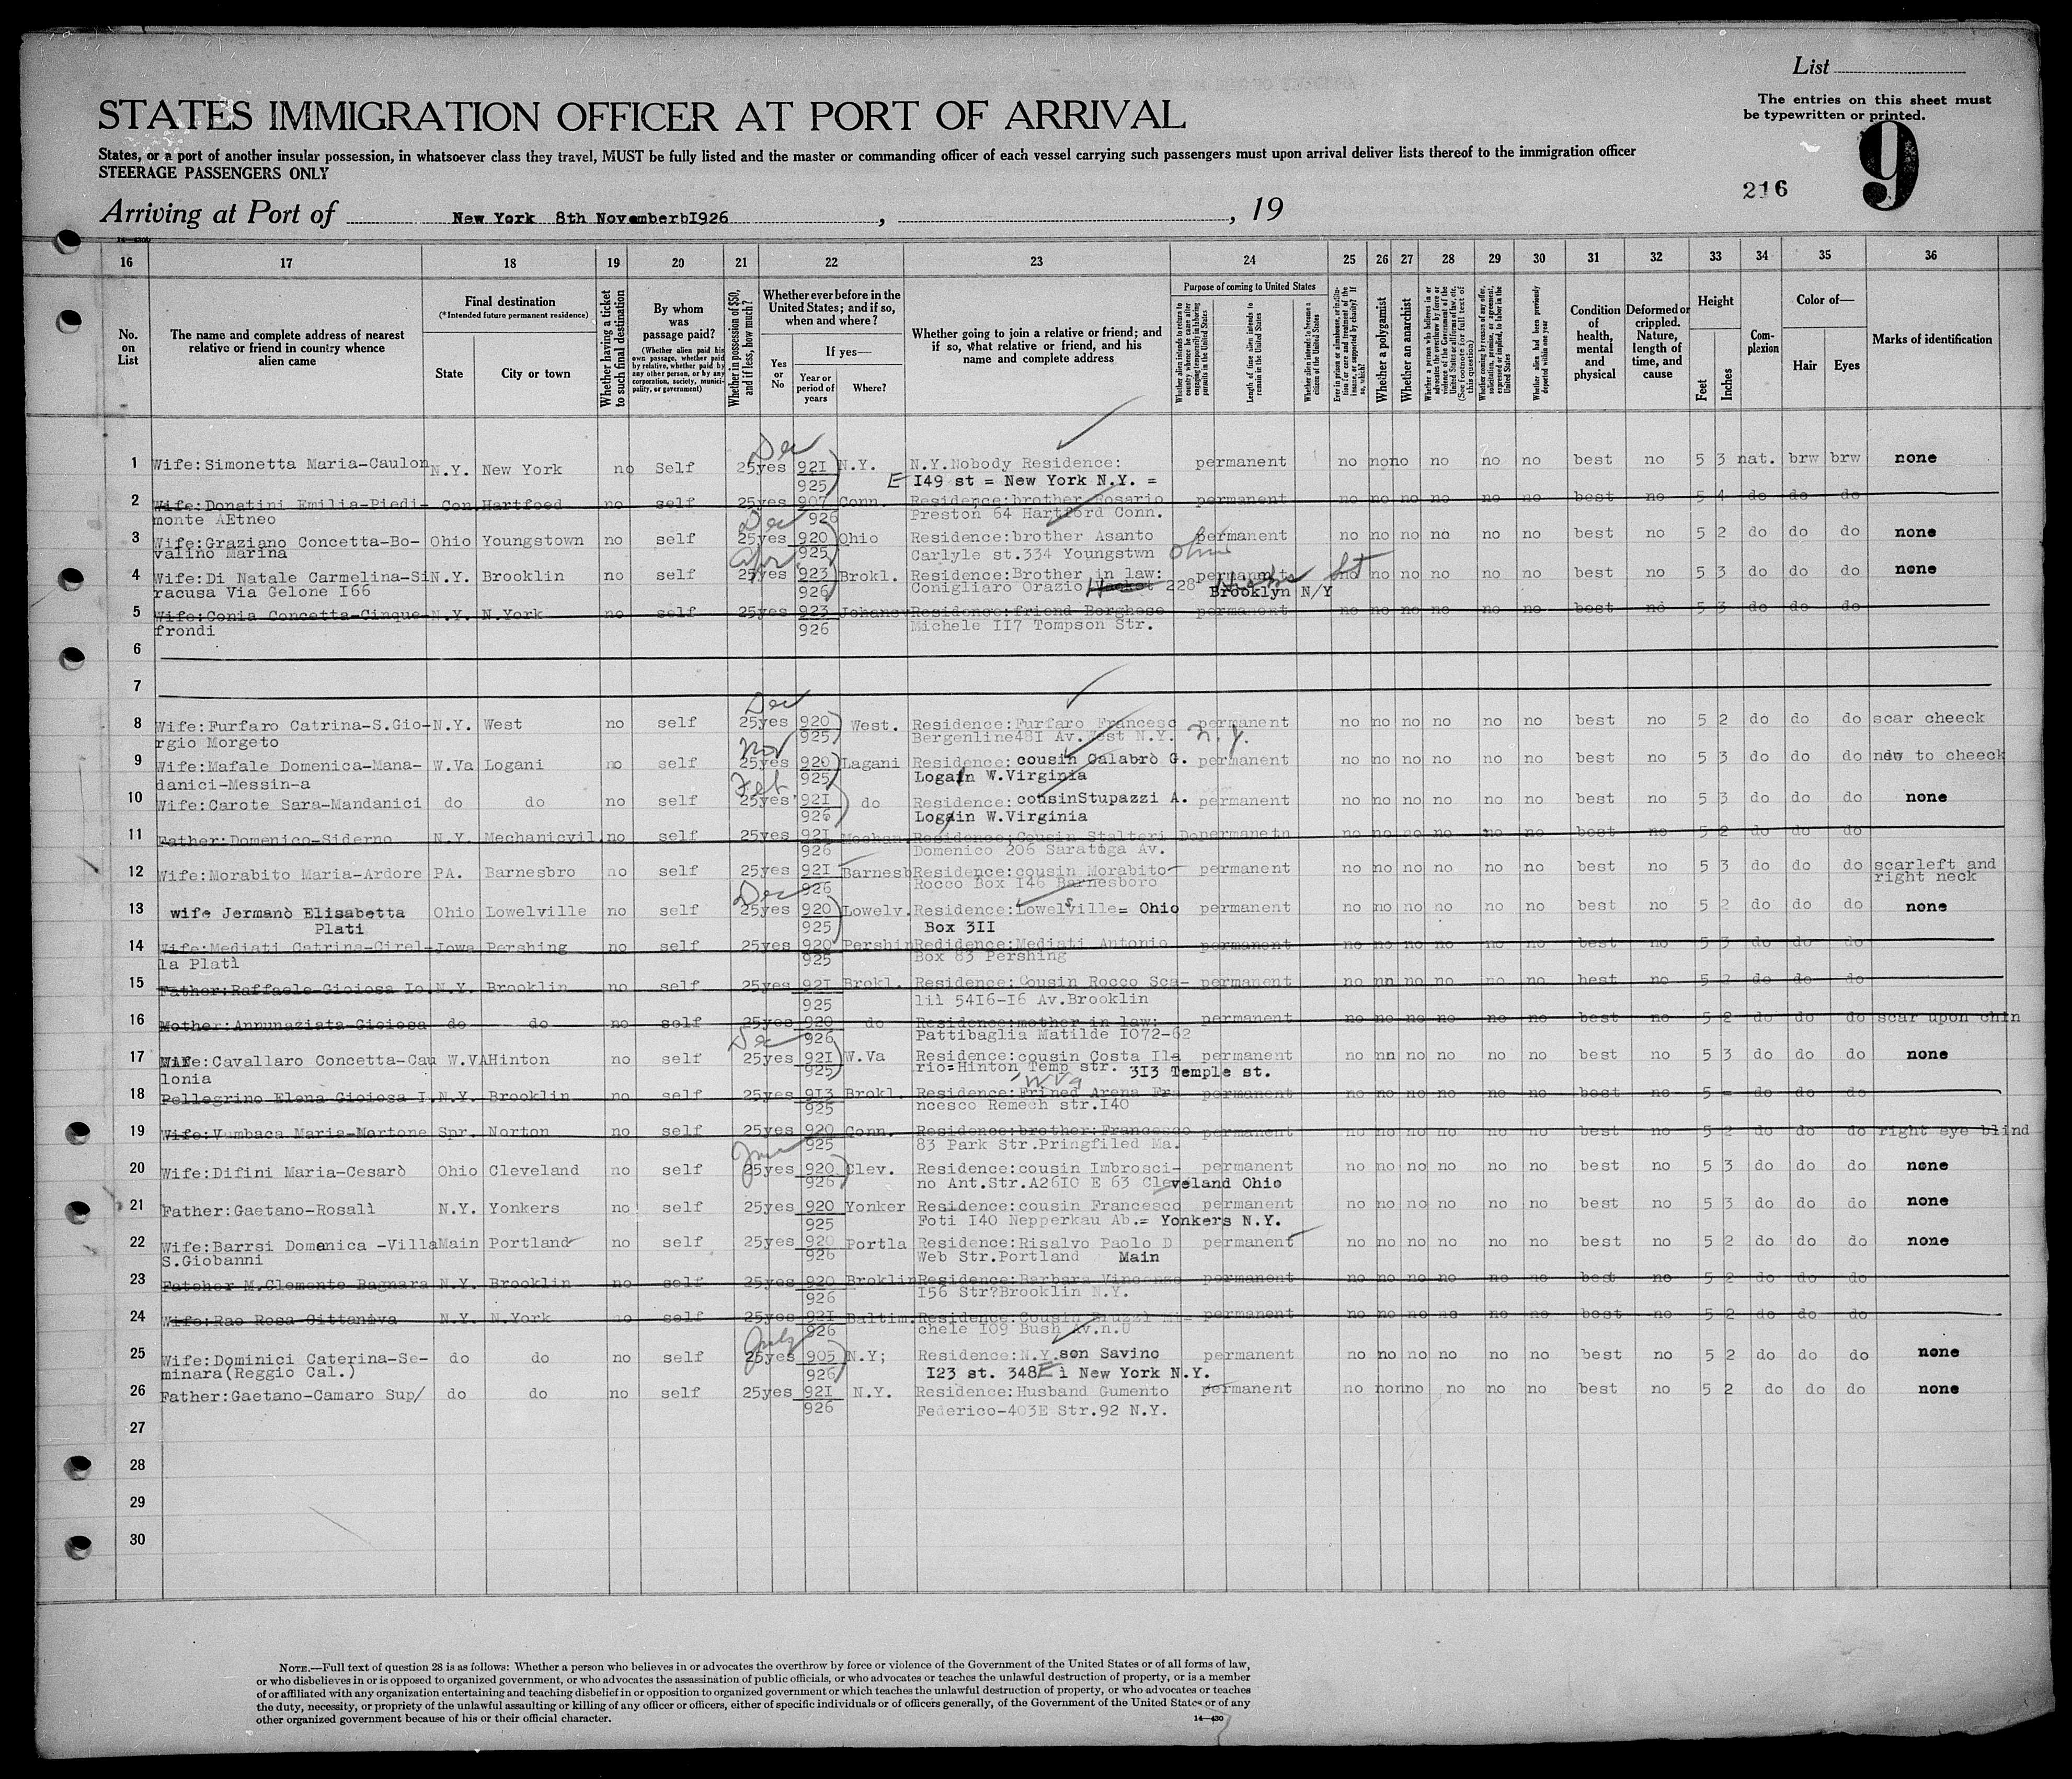 List
The entries on this sheet must
be typewritten or printed.
STATES IMMIGRATION OFFICER AT PORT OF ARRIVAL
9
States, or a port of another insular possession, in whatsoever class they travel, MUST be fully listed and the master or commanding officer of each vessel carrying such passengers must upon arrival deliver lists thereof to the immigration officer
STEERAGE PASSENGERS ONLY
216
Arriving at Port of New York 8th NovemberbI926 , , 19
16 17 18 19 20 21 22 23 24 25 26 27 28 29 30 31 32 33 34 35 36
No. on List
The name and complete address of nearest relative or friend in country whence alien came
Final destination
(*Intended future permanent residence)
State
City or town
Whether having a ticket to such final destination
By whom was passage paid?
(Whether alien paid his own passage, whether paid by relative, whether paid by any other person, or by any corporation, society, municipality, or government)
Whether in possession of $50, and if less, how much?
Whether ever before in the United States; and if so, when and where?
Yes or No
If yes—
Year or period of years
Where?
Whether going to join a relative or friend; and if so, what relative or friend, and his name and complete address
Purpose of coming to United States
Whether alien intends to return to country whence he came after engaging temporarily in laboring pursuits in the United States
Length of time alien intends to remain in the United States
Whether alien intends to become a citizen of the United States
Whether a polygamist
Whether an anarchist
Whether alien had been previously deported within one year
Condition of health, mental and physical
Deformed or crippled. Nature, length of time, and cause
Height
Feet
Inches
Complexion
Color of—
Hair
Eyes
Marks of identification
Dec
1 Wife:Simonetta Maria-Caulon N.Y. New York no Self 25yes 92I N.Y. N.Y.Nobody Residence: permanent no no no no no no best no 5 3 nat. brw brw none
925 E I49 st = New York N.Y. =
2 Wife:Donatini Emilia-Piedi- Con. Hartfoed no self 25yes 907 Conn. Residence:brother Rosario permanent no no no no no no best no 5 4 do do do
monte AEtneo 926 Preston 64 Hartford Conn.
Dec
3 Wife:Graziano Concetta-Bo- Ohio Youngstown no self 25yes 920 Ohio Residence:brother Asanto permanent no no no no no no best no 5 2 do do do none
valino Marina 925 Carlyle st.334 Youngstwn Ohio
Apr.
4 Wife:Di Natale Carmelina-Si N.Y. Brooklin no self 25yes 923 Brokl. Residence:Brother in law: permannt no no no no no no best no 5 3 do do do none
racusa Via Gelone I66 926 Conigliaro Orazio 228 St
Brooklyn N/Y
5 Wife:Conia Concetta-Cinque- N.Y. N.York no self 25yes 923 Johans Residence:friend Borghese permanent no no no no no no best no 5 3 do do do
frondi 926 Michele II7 Tompson Str.
6
7
Dec
8 Wife:Furfaro Catrina-S.Gio- N.Y. West no self 25yes 920 West. Residence:Furfaro Francesc permanent no no no no no no best no 5 2 do do do scar cheeck
rgio Morgeto 925 Bergenline48I Av.West N.Y. N.Y.
Nov
9 Wife:Mafale Domenica-Mana- W.Va Logani no self 25yes 920 Lagani Residence: cousin Calabrò G. permanent no no no no no no best no 5 3 do do do to cheeck
danici-Messin-a 925 Logain W.Virginia
Feb
10 Wife:Carote Sara-Mandanici do do no self 25yes 92I do Residence: cousinStupazzi A. permanent no no no no no no best no 5 3 do do do none
926 Logain W.Virginia
11 Father:Domenico-Siderno N.Y. Mechanicvil. no self 25yes 92I Mechan. Residence:Cousin Stalteri Do permanetn no no no no no no best no 5 2 do do do
926 Domenico 206 Saratoga Av.
12 Wife:Morabito Maria-Ardore PA. Barnesbro no self 25yes 92I Barnesb Residence:cousin Morabito permanent no no no no no no best no 5 3 do do do scarleft and
926 Rocco Box I46 Barnesboro right neck
Dec
13 wife Jermanò Elisabetta Ohio Lowelville no self 25yes 920 Lowelv. Residence:Lowelsville= Ohio permanent no no no no no no best no 5 2 do do do none
Plati 925 Box 3II
14 Wife:Mediati Catrina-Cirel- Jowa Pershing no self 25yes 920 Pershin Redidence:Mediati Antonio permanent no no no no no no best no 5 3 do do do
la Platì 925 Box 83 Pershing
15 Father:Raffaele-Gioiosa Io. N.Y. Brooklin no self 25yes 92I Brokl. Residence:Cousin Rocco Sca- permanent no nn no no no no best no 5 2 do do do
925 lil 54I6-I6 Av.Brooklin
16 Mother:Annunaziata-Gioiosa do do no self 25yes 920 do Residence:mother in law: permanent no no no no no no best no 5 2 do do do scar upon chin
926 Pattibaglia Matilde I072-62
Dec
17 Wife:Cavallaro Concetta-Cau W.VA Hinton no self 25yes 92I W.Va Residence:cousin Costa Ila permanent no nn no no no no best no 5 3 do do do none
lonia 925 rio=Hinton Temp str. 3I3 Temple st.
W Va
18 Pellegrino Elena Gioiosa I. N.Y. Brooklin no self 25yes 9I3 Brokl. Residence:Frined Arena Fr permanent no no no no no no best no 5 - do do do
925 ncesco Remech str.I40
19 Wife:Vumbaca Maria-Mortone Spr. Norton no self 25yes 920 Conn. Residence:brother:Francesco permanent no no no no no no best no 5 2 do do do right eye blind
925 83 Park Str.Pringfiled Ma.
June
20 Wife:Difini Maria-Cesarò Ohio Cleveland no self 25yes 920 Clev. Residence:cousin Imbrosci- permanent no no no no no no best no 5 3 do do do none
926 no Ant.Str.A26I0 E 63 Cleveland Ohio
21 Father:Gaetano-Rosalì N.Y. Yonkers no self 25yes 920 Yonker Residence:cousin Francesco permanent no no no no no no best no 5 3 do do do none
925 Foti I40 Nepperkau Ab.= Yonkers N.Y.
22 Wife:Barrsi Domenica -Villa Main Portland no self 25yes 920 Portla Residence:Risalvo Paolo D permanent no no no no no no best no 5 2 do do do none
S.Giobanni 926 Web Str.Portland Main
23 Fatcher M.Clemente Bagnara N.Y. Brooklin no self 25yes 920 Broklin Residence:Barbara Vincenzo permanent no no no no no no best no 5 2 do do do
926 I56 Str?Brooklin N.Y.
24 Wife:Rao Rosa Cittaniva N.Y. N.York no self 25yes 92I Baltim. Residence:Cousin Mi- permanent no no no no no no best no 5 2 do do do
926 chele I09 Bush Av.n.U
July
25 Wife:Dominici Caterina-Se- do do no self 25yes 905 N.Y; Residence:N.Y.son Savino permanent no no no no no no best no 5 2 do do do none
minara(Reggio Cal.) 926 I23 st. 348E ì New York N.Y.
26 Father:Gaetano-Camaro Sup/ do do no self 25yes 92I N.Y. Residence:Husband Gumento permanent no no no no no no best no 5 2 do do do none
926 Federico-403E Str.92 N.Y.
27
28
29
30
NOTE.—Full text of question 28 is as follows: Whether a person who believes in or advocates the overthrow by force or violence of the Government of the United States or of all forms of law,
or who disbelieves in or is opposed to organized government, or who advocates the assassination of public officials, or who advocates or teaches the unlawful destruction of property, or is a member
of or affiliated with any organization entertaining and teaching disbelief in or opposition to organized government or which teaches the unlawful destruction of property, or who advocates or teaches
the duty, necessity, or propriety of the unlawful assaulting or killing of any officer or officers, either of specific individuals or of officers generally, of the Government of the United States or of any
other organized government because of his or their official character.
14—430